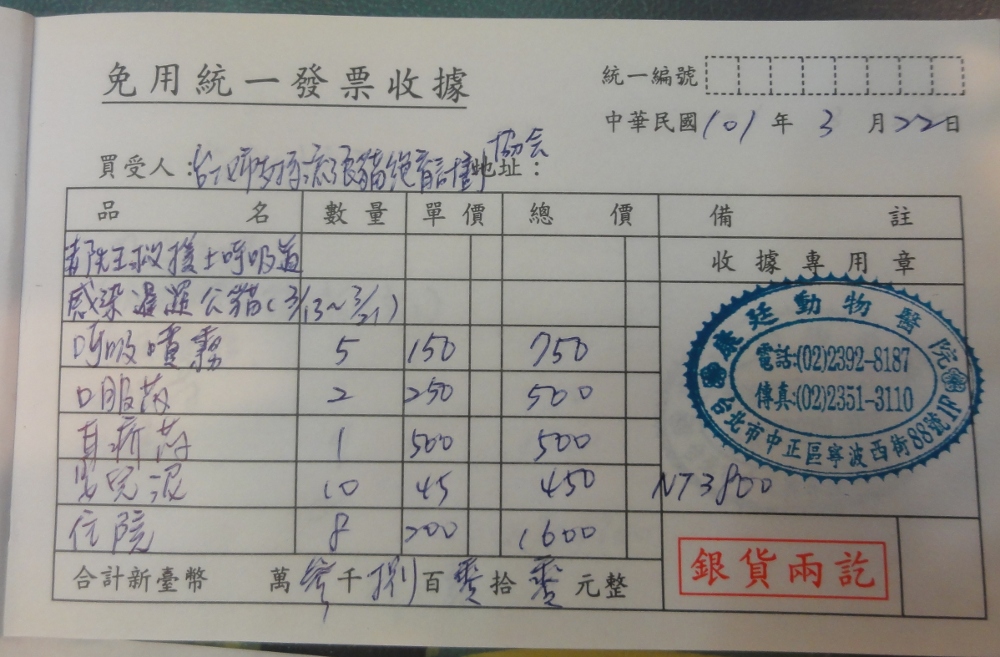 免用統一發票收據
統一編號
中華民國101年3月22日
買受人：台灣 流浪貓絕育計劃協会 地址：
品名 數量 單價 總價 備註
救援上呼吸道
感染 公貓(3/13~3/21)
收據專用章
呼吸噴霧 5 150 750
口服药 2 250 500
耳疥药 1 500 500
10 45 450
住院 8 200 1600
康廷動物醫院
電話:(02)2392-8187
傳真:(02)2351-3110
台北市中正區寧波西街88號1F
NT3800
合計新臺幣 萬參千捌百零拾零元整
銀貨兩訖